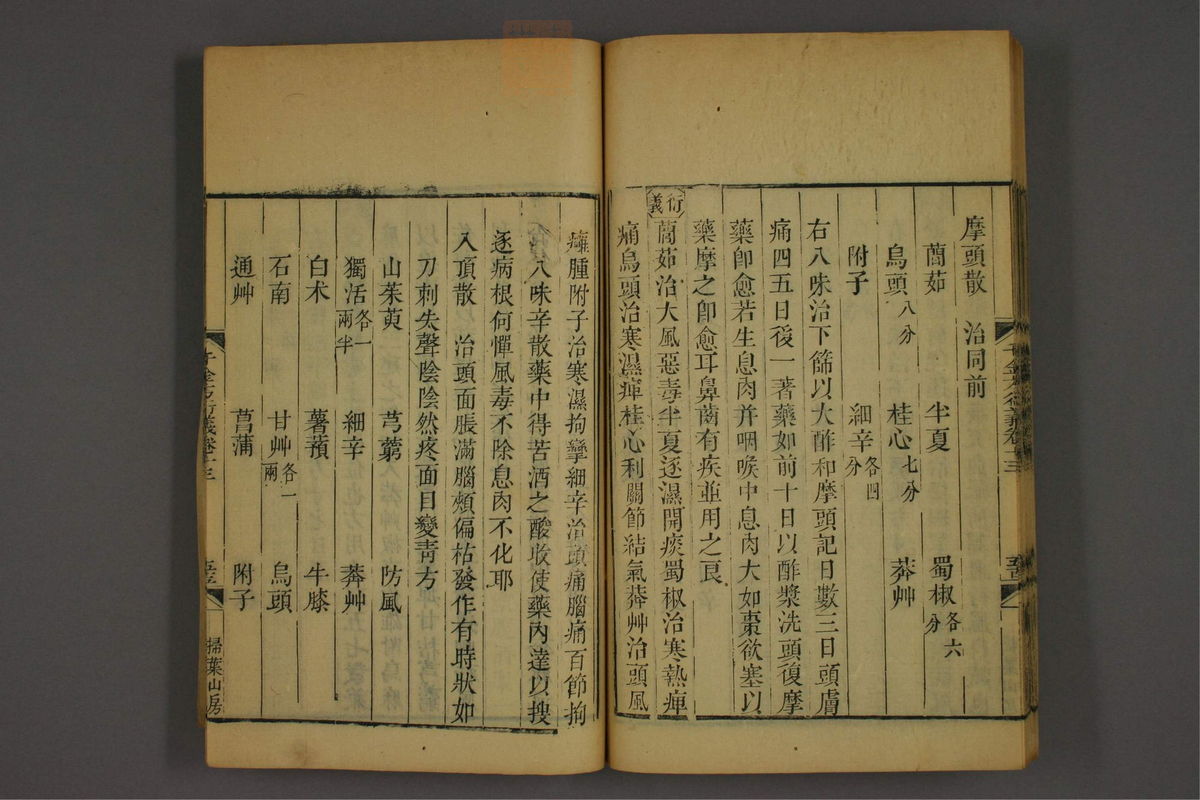 摩頭散　治同前
䕡茹　半夏　蜀椒各六分
烏頭八分　桂心七分　莽艸
附子　細辛各四分
右八味治下篩以大酢和摩頭記日數三日頭膚
痛四五日後一著藥如前十日以酢漿洗頭復摩
藥卽愈若生息肉幷咽喉中息肉大如棗欲塞以
藥摩之卽愈耳鼻齒有疾並用之良
衍義　䕡茹治大風惡毒半夏逐濕開痰蜀椒治寒熱痺
痛烏頭治寒濕痺桂心利關節結氣莽艸治頭風
癰腫附子治寒濕拘攣細辛治頭痛腦痛百節拘
八味辛散藥中得苦酒之酸收使藥內達以搜
逐病根何憚風毒不除息肉不化耶
入頂散　治頭面脹滿腦頰偏枯發作有時狀如
刀刺失聲陰陰然疼面目變靑方
山茱萸　芎藭　防風
獨活各一兩半　細辛　莽艸
白朮　薯蕷　牛膝
石南　甘艸各一兩　烏頭
通艸　菖蒲　附子
千金方衍義卷十三
掃葉山房